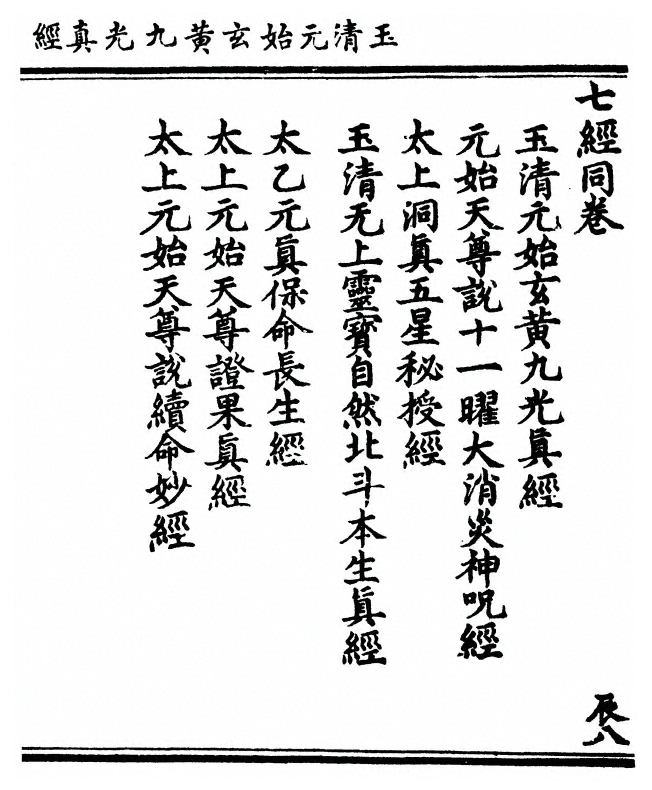 玉清元始玄黃九光真經
七經同卷
辰八
玉清元始玄黃九光眞經
元始天尊說十一曜大消災神呪經
太上洞眞五星秘授經
玉清无上靈寶自然北斗本生眞經
太乙元眞保命長生經
太上元始天尊證果眞經
太上元始天尊說續命妙經